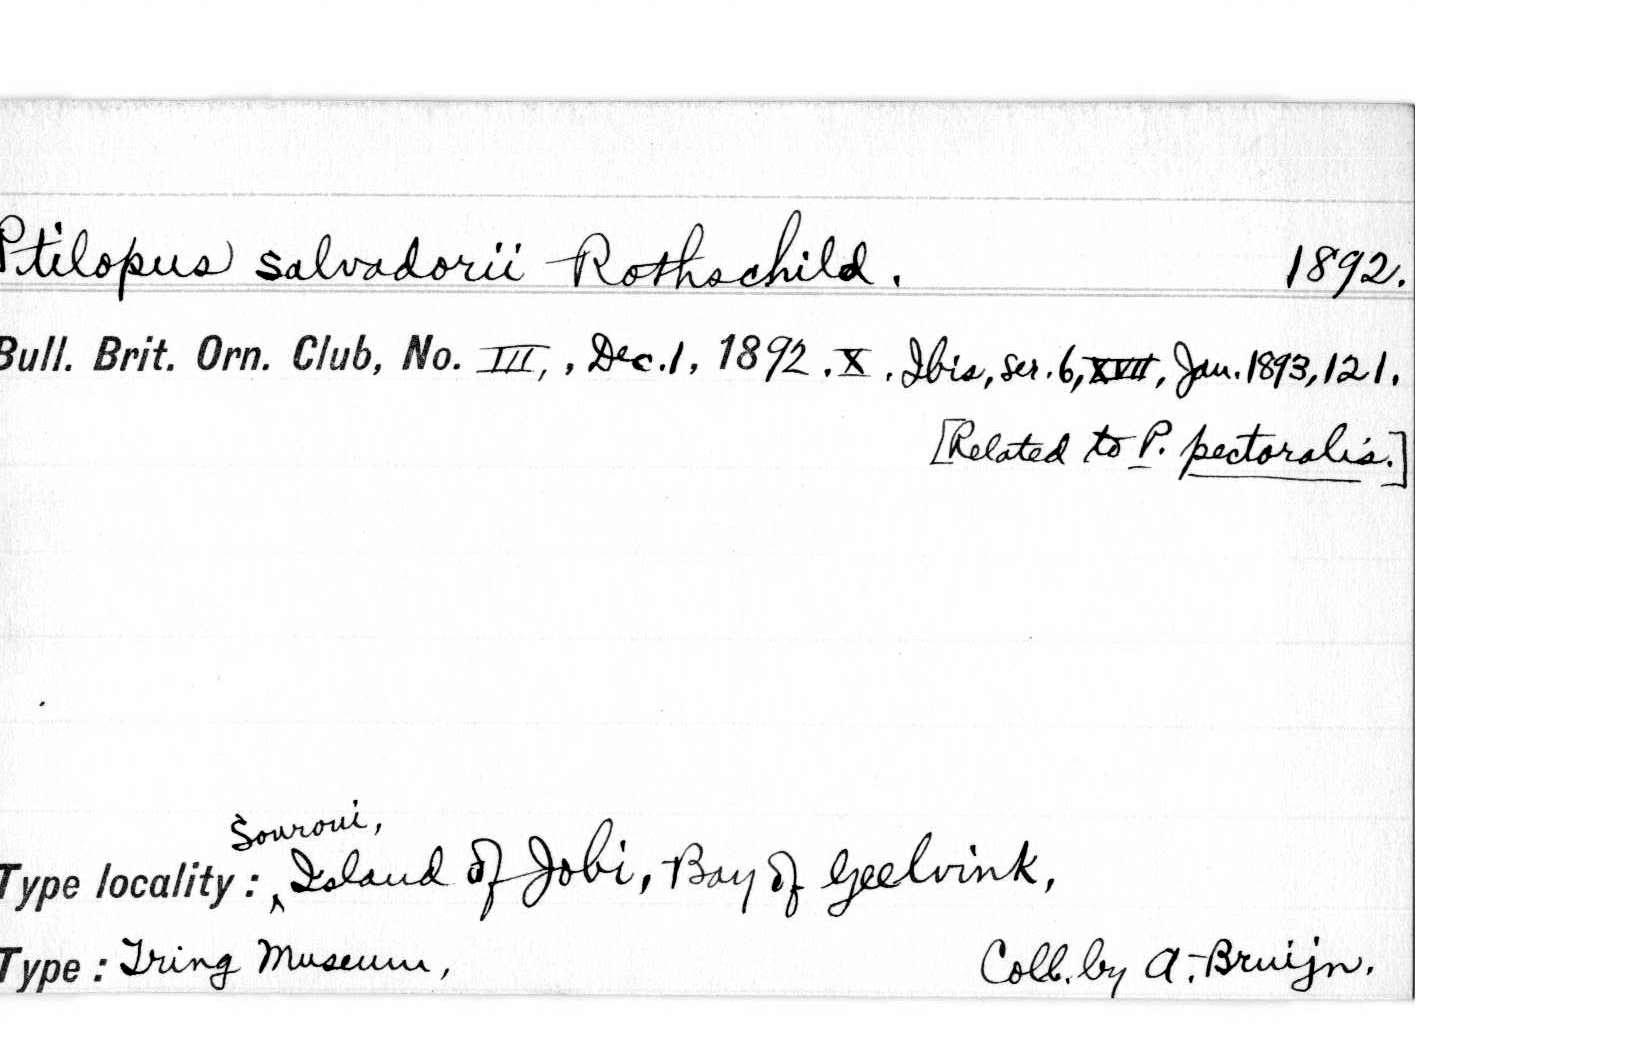 Ptilopus salvadorii Rothschild. 1892.
Bull. Brit. Orn. Club, No. III, , Dec.1, 1892 . X . Ibis, ser. 6, XVII, Jan. 1893, 121.
[Related to P. pectoralis.]
Souroui,
Type locality : ‸ Island of Jobi, Bay of Geelvink,
Type : Tring Museum, Coll. by A. Bruijn.